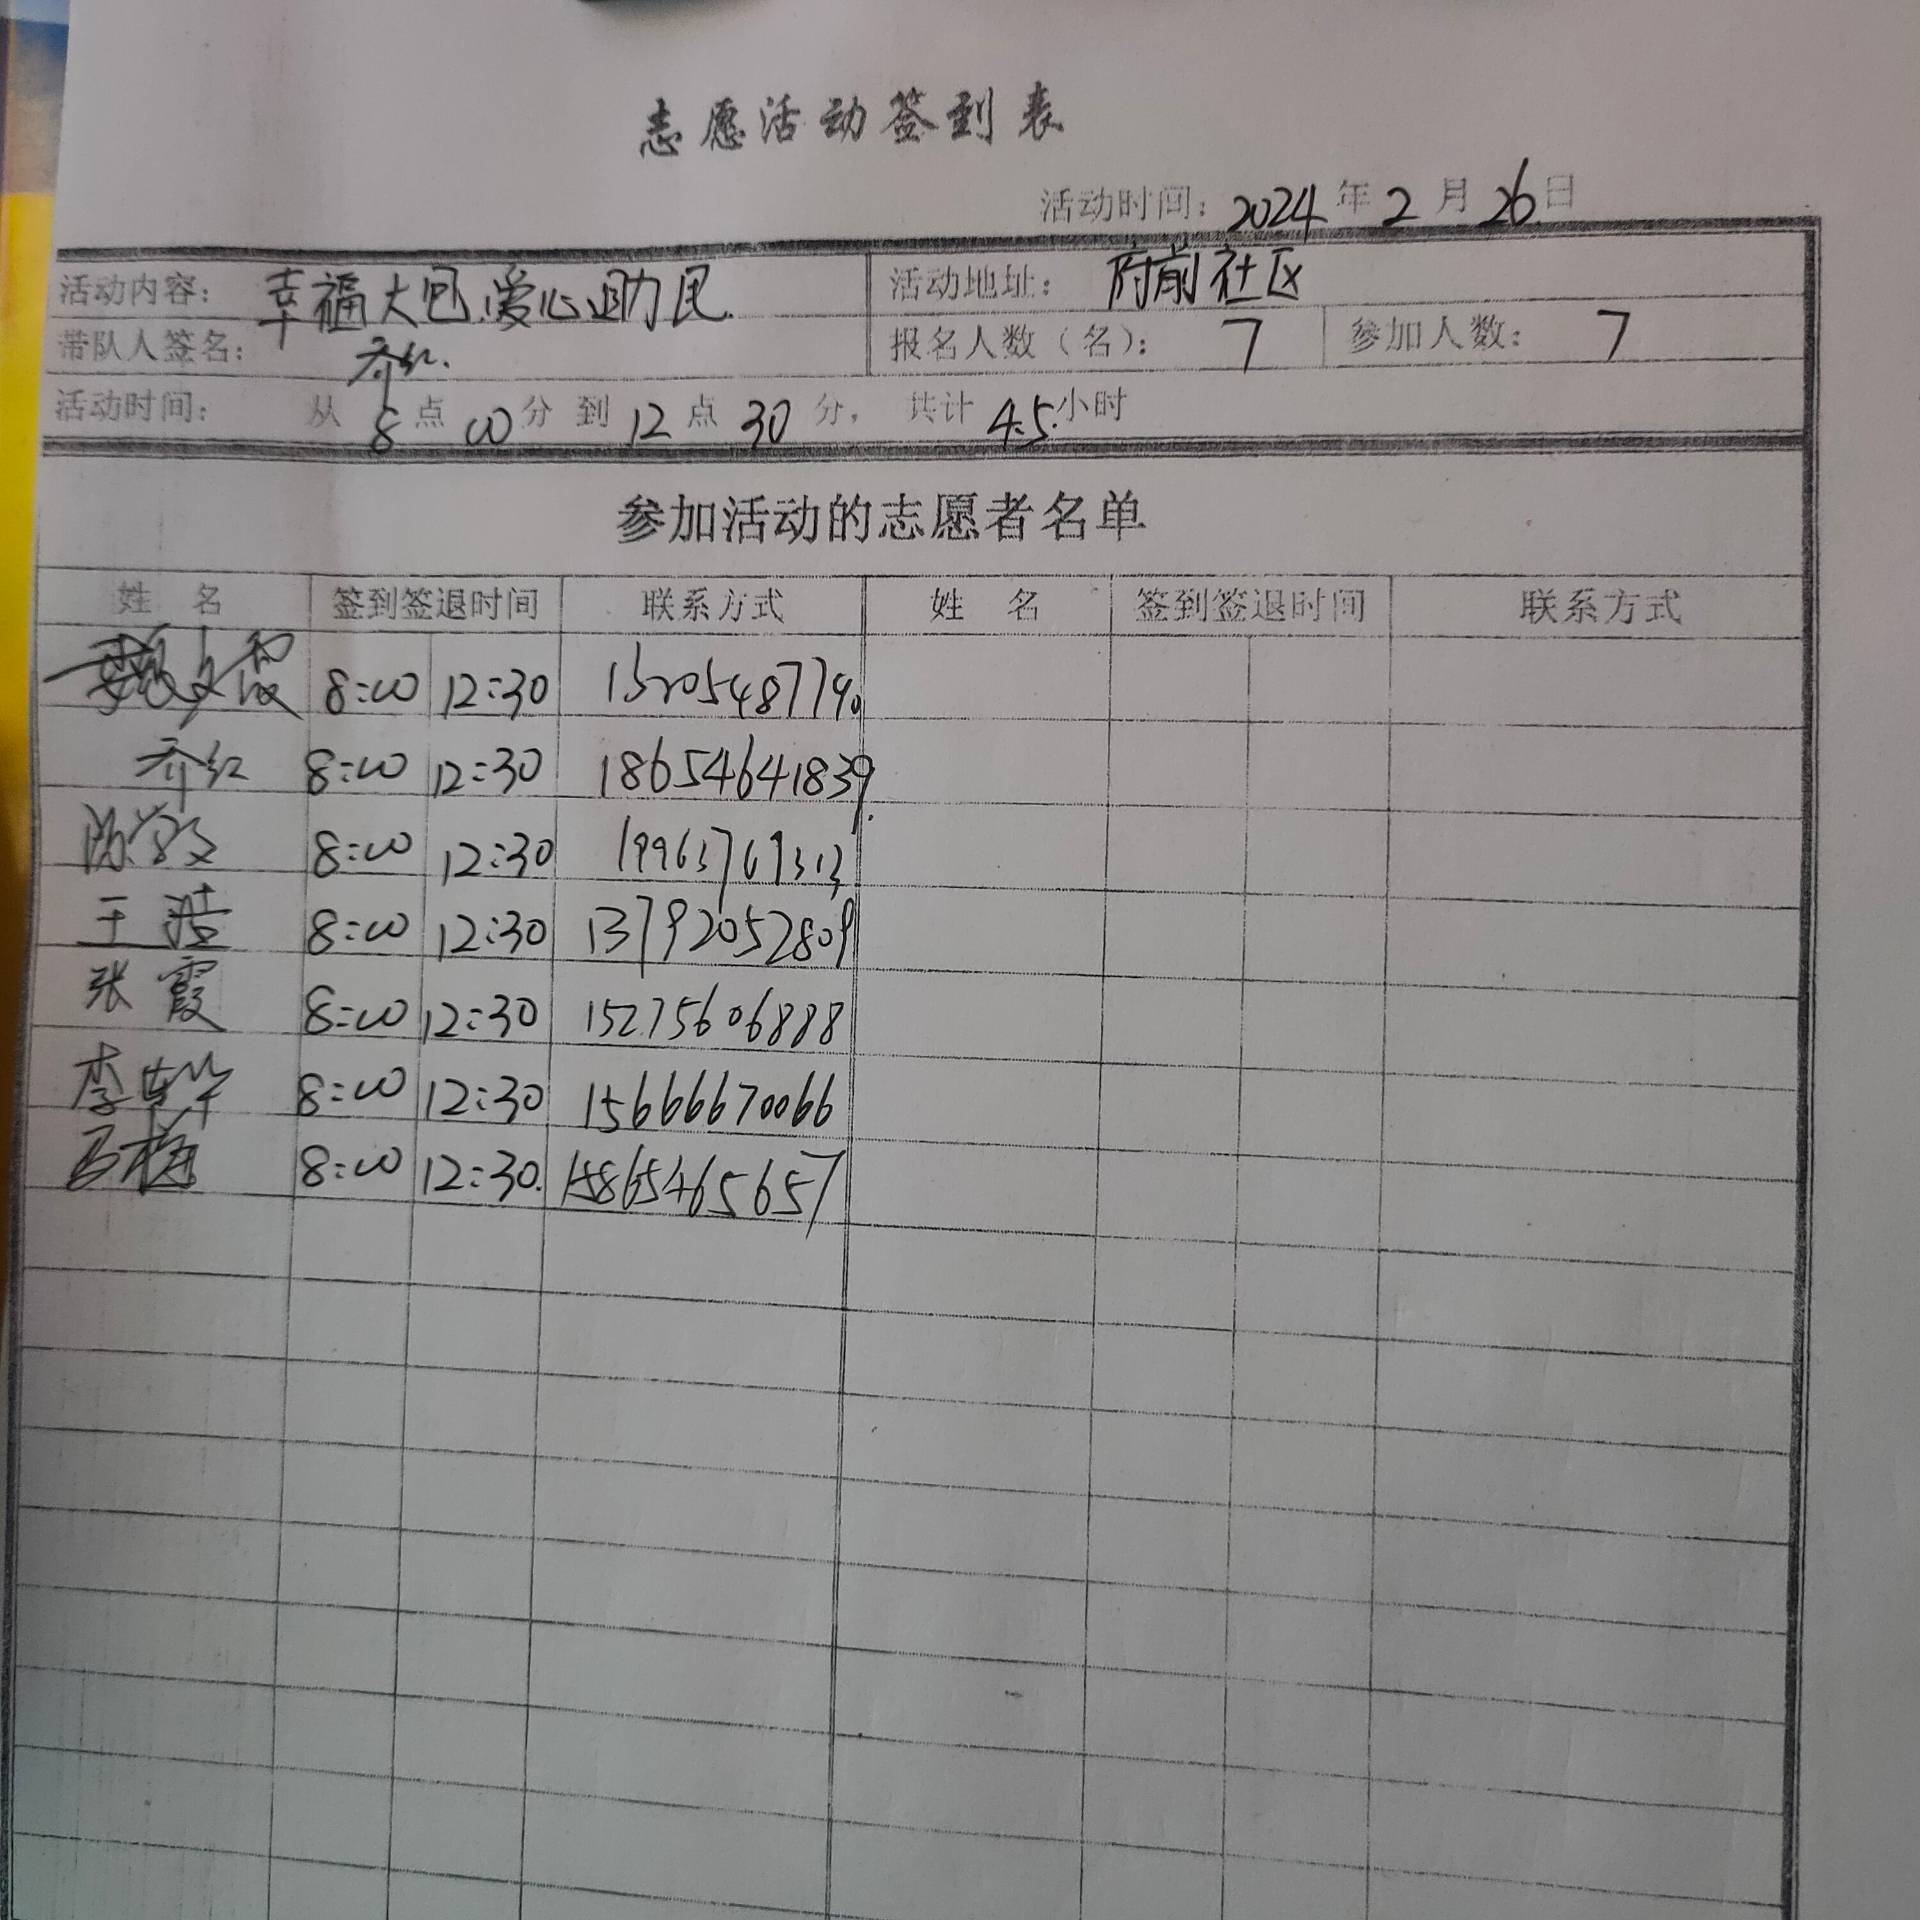 志愿活动签到表
活动时间：2024年2月26日
活动内容：幸福大包.爱心助民. 活动地址：府前社区
带队人签名：乔红. 报名人数（名）：7 参加人数：7
活动时间： 从8点00分到12点30分， 共计4.5小时
参加活动的志愿者名单
姓 名 签到签退时间 联系方式 姓 名 签到签退时间 联系方式
8:00 12:30 15205487790
乔红 8:00 12:30 18654641839.
8:00 12:30
王浩 8:00 12:30 13792052809
张霞 8:00 12:30 15275606888
李 8:00 12:30 15666670066
8:00 12:30. 15865465657